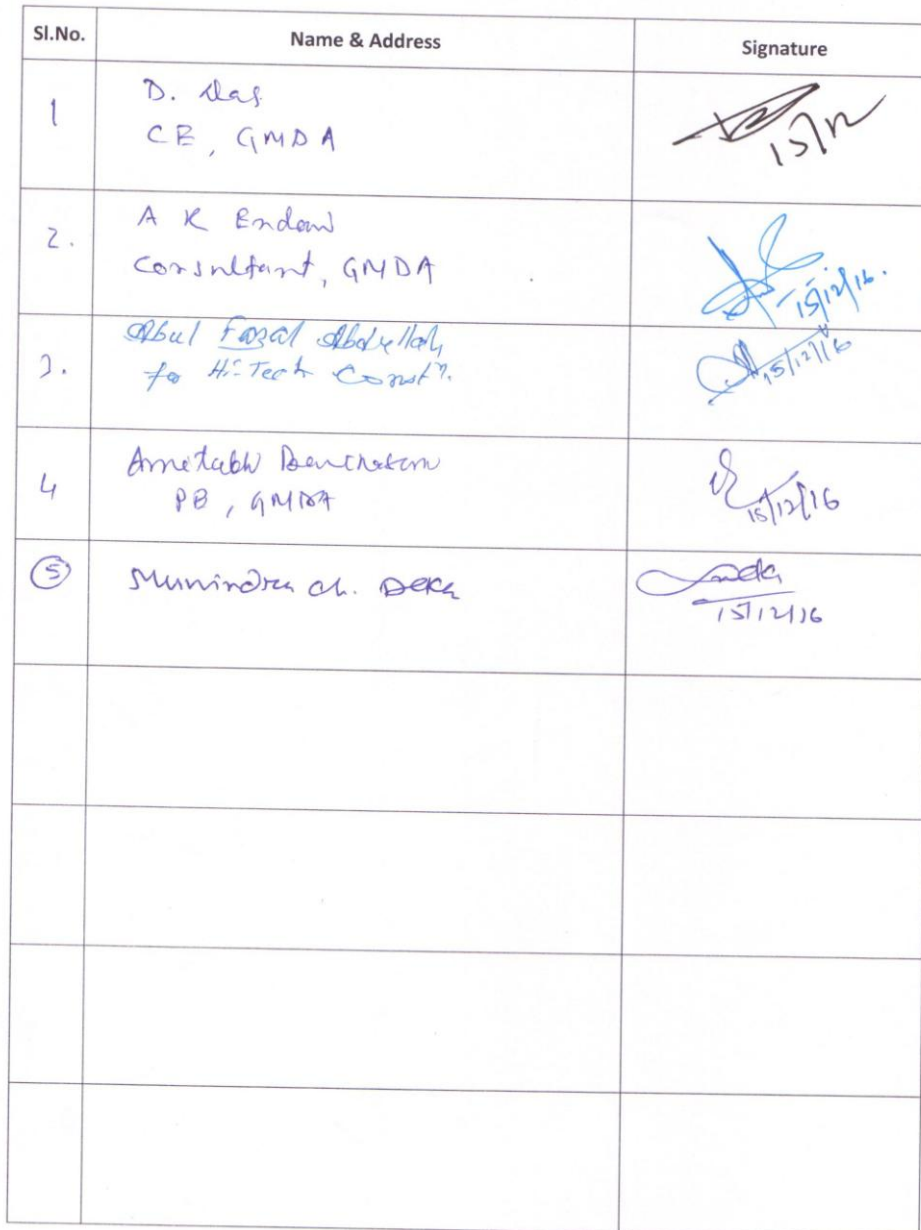 Sl.No. Name & Address Signature
1 D. Das 15/12
CE, GMDA
2. A K Endow
Consultant, GMDA 15/12/16.
3. Abul Fazal Abdullah 15/12/16
for Hi-Tech Constn.
4 Amitabh
PE, GMDA 15/12/16
5 Munindra ch. Deka
15/12/16